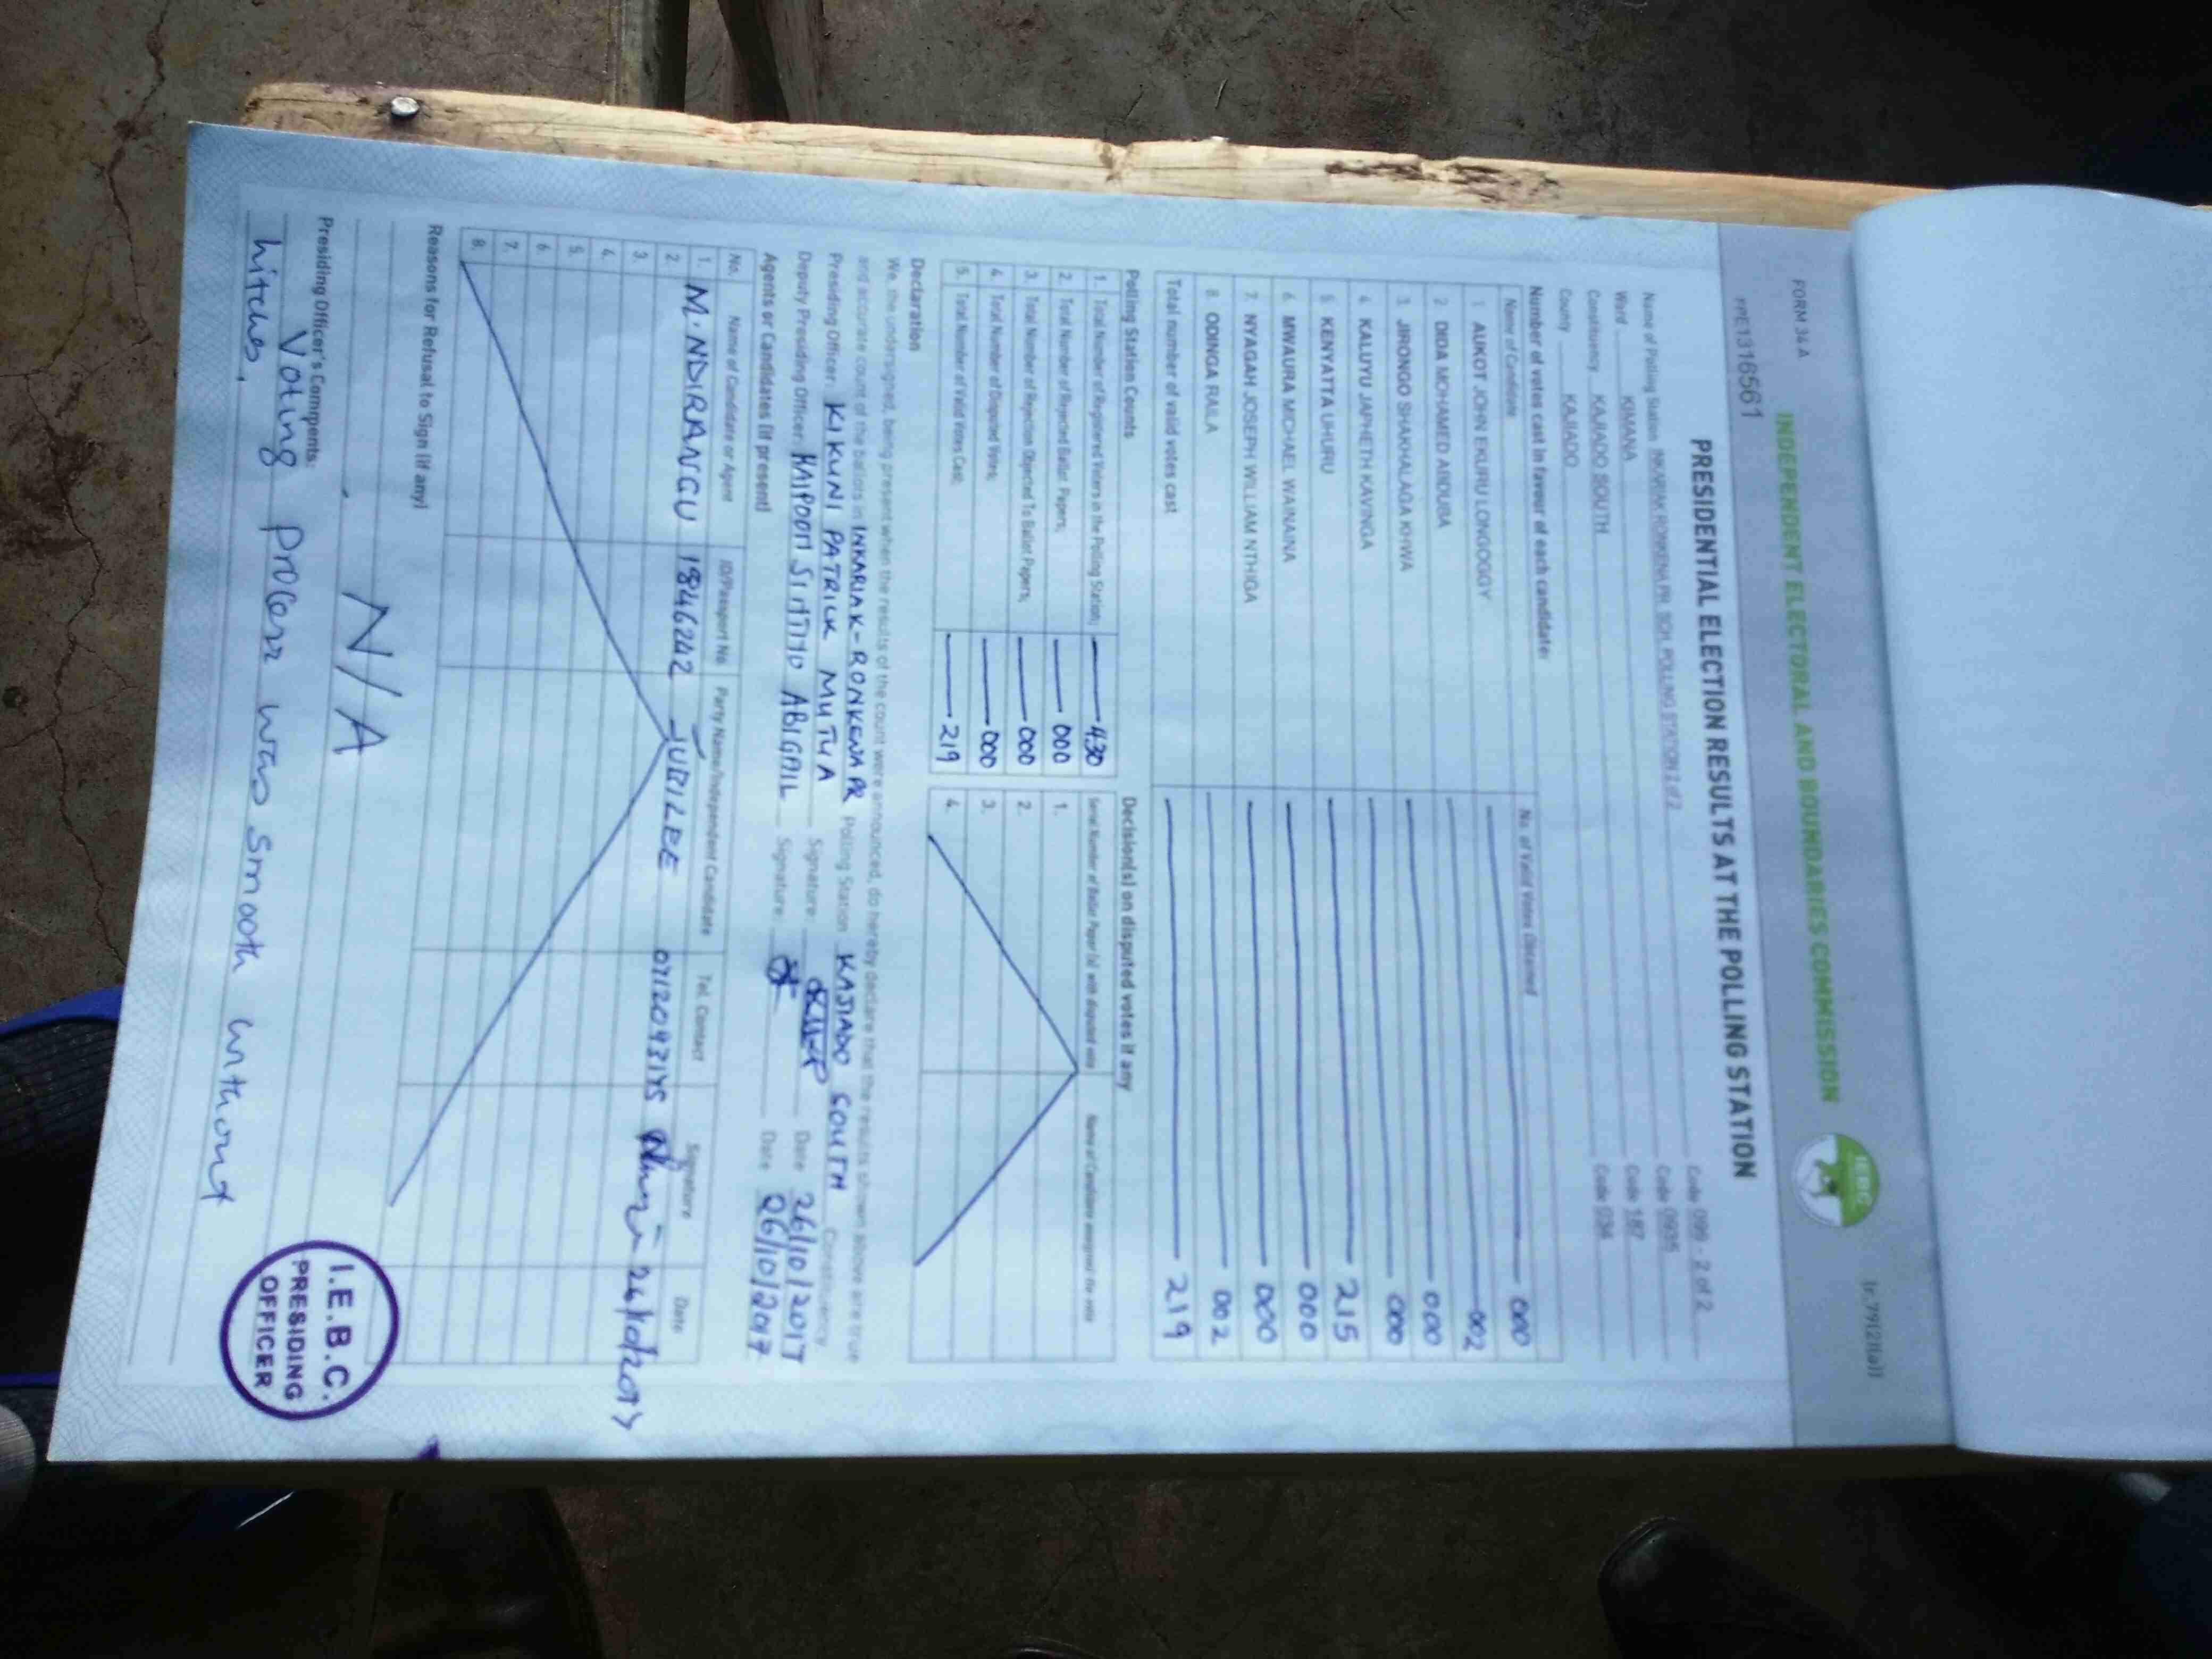 FORM 34A
(r.79(2)(a))
INDEPENDENT ELECTORAL AND BOUNDARIES COMMISSION
IEBC
PRE1316561
PRESIDENTIAL ELECTION RESULTS AT THE POLLING STATION
Name of Polling Station INKARIAK RONKENA PRI. SCH. POLLING STATION 2 of 2 Code 099 - 2 of 2
Ward KIMANA Code 0935
Constituency KAJIADO SOUTH Code 187
County KAJIADO Code 034
Number of votes cast in favour of each candidate:
Name of Candidate No. of Valid Votes Obtained
1 AUKOT JOHN EKURU LONGOGGY 000
2 DIDA MOHAMED ABDUBA 002
3 JIRONGO SHAKHALAGA KHWA 000
4 KALUYU JAPHETH KAVINGA 000
5 KENYATTA UHURU 215
6 MWAURA MICHAEL WAINAINA 000
7 NYAGAH JOSEPH WILLIAM NTHIGA 000
8 ODINGA RAILA 002
Total number of valid votes cast 219
Polling Station Counts
1. Total Number of Registered Voters in the Polling Station; 430
2. Total Number of Rejected Ballot Papers; 000
3. Total Number of Rejection Objected To Ballot Papers; 000
4. Total Number of Disputed Votes; 000
5. Total Number of Valid Votes Cast; 219
Decision(s) on disputed votes if any
Serial Number of Ballot Paper (s) with disputed vote Name of Candidate assigned the vote
1.
2.
3.
4.
Declaration
We, the undersigned, being present when the results of the count were announced, do hereby declare that the results shown above are true
and accurate count of the ballots in INKARIAK-RONKENA PR Polling Station KAJIADO SOUTH Constituency
Presiding Officer: KIKUNI PATRICK MUTUA Signature: Date 26/10/2017
Deputy Presiding Officer: ABIGAIL Signature: Date 26/10/2017
Agents or Candidates (if present)
No. Name of Candidate or Agent ID/Passport No Party Name/Independent Candidate Tel. Contact Signature Date
1. M. NDIRANGU 1846242 JUBILEE 26/10/2017
2.
3.
4.
5.
6.
7.
8.
Reasons for Refusal to Sign (if any)
N/A
Presiding Officer's Comments:
Voting process was smooth without
hitches.
I.E.B.C.
PRESIDING
OFFICER